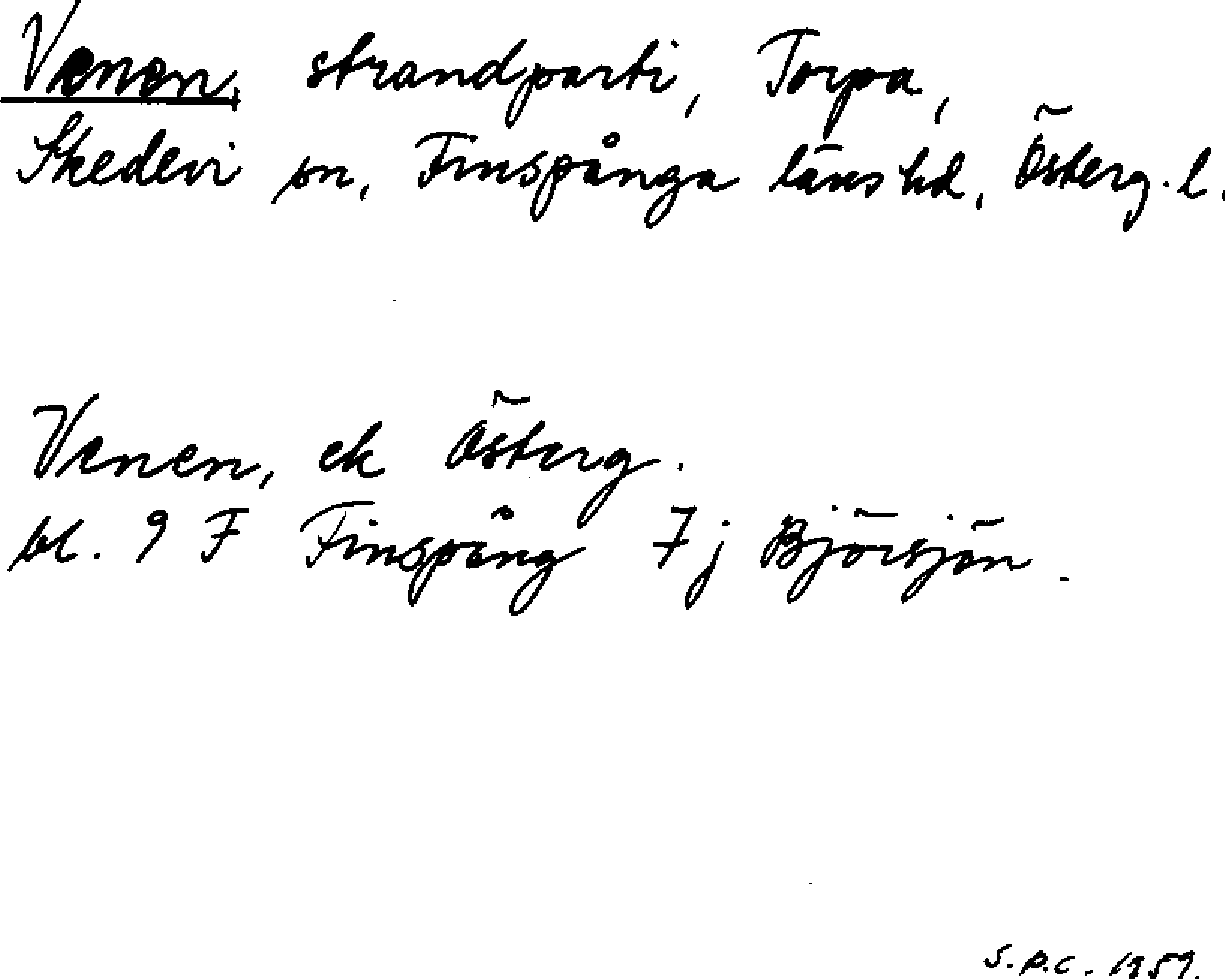 Venen, strandparti, Torpa,
Skedevi sn, Finspånga läns hd, Österg. l.
Venen, ek Österg.
bl. 9 F Finspång 7 j Björsjön.
S.P.C. 1959.